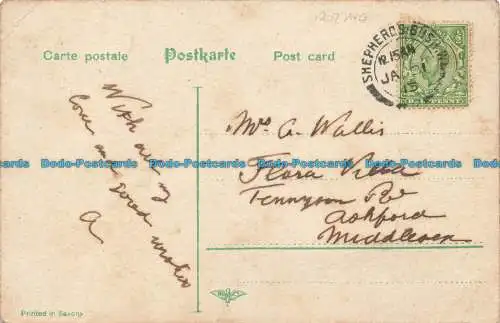 Carte postale
Postkarte
Post card
SHEPHERDS BUSH
12.15 AM
JA 1
15
HALFPENNY
With all my
love and good wishes
A
Mrs A. Wallis
Flora Villa
Tennyson Rd
Ashford
Middlesex
Dodo-Postcards Dodo-Postcards Dodo-Postcards Dodo-Postcards Dodo-Postcards
Printed in Saxony